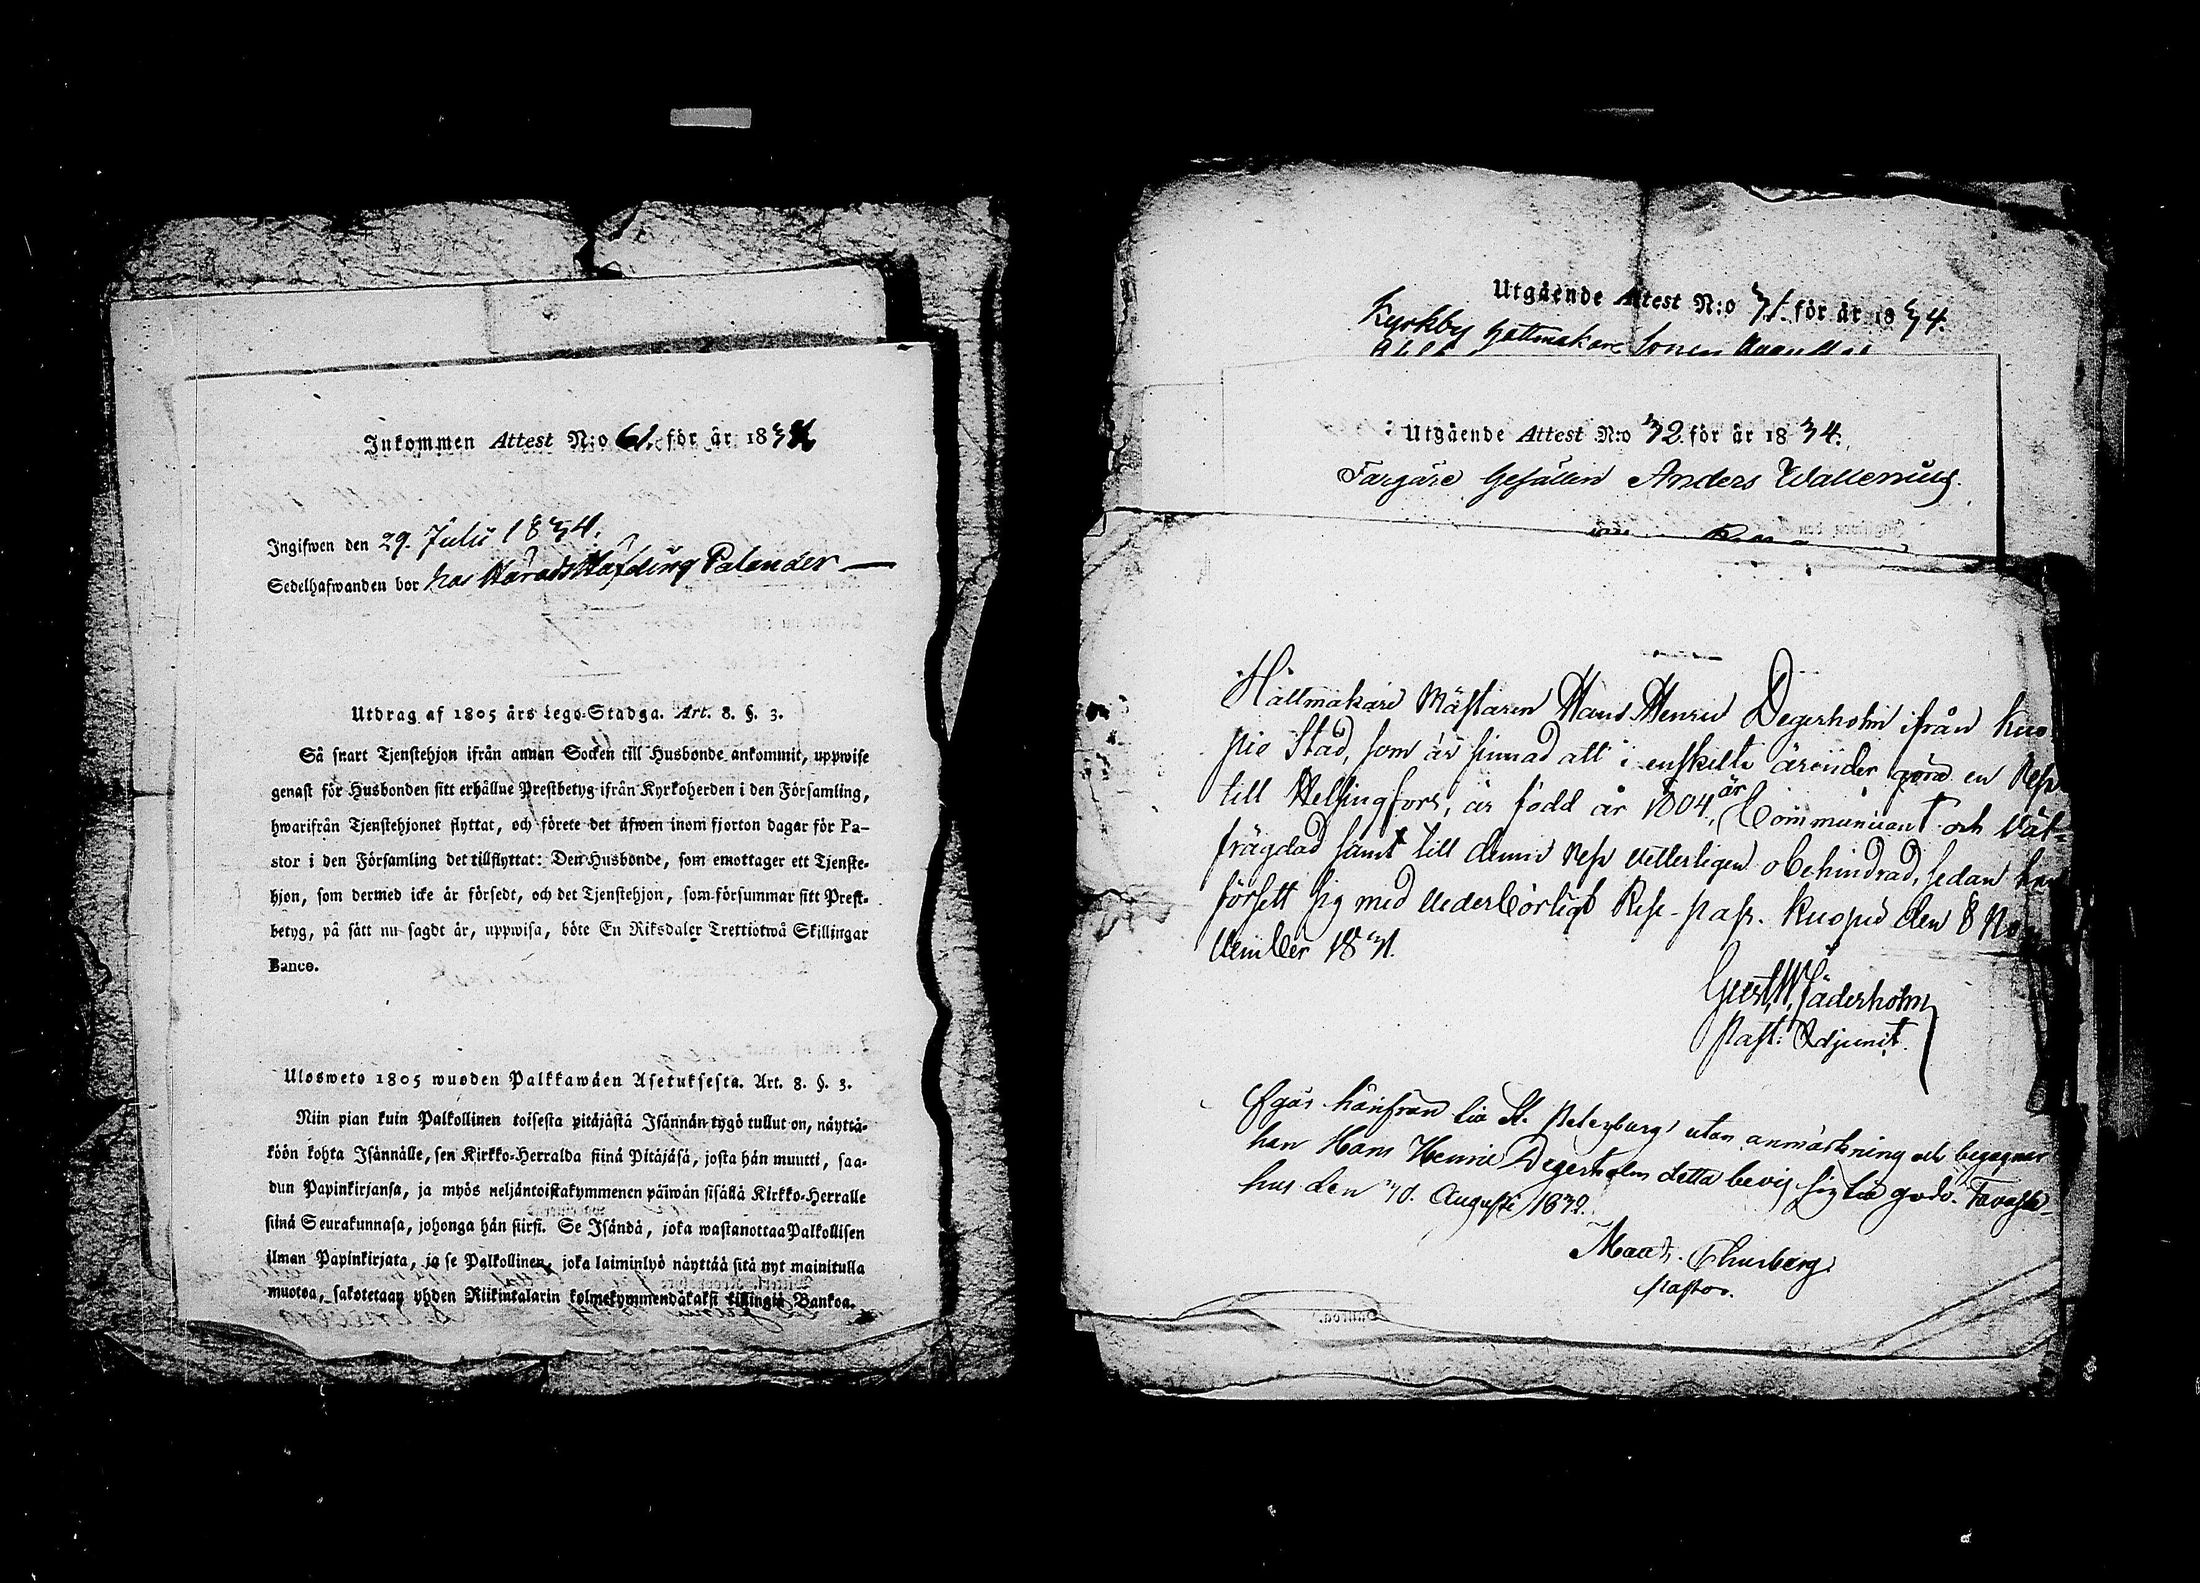 Inkommen Attest N:o 61. för år 1834
Ingifwen den 29. Julii 1834.
Sedelhafwanden bor hos Härads Höfding Palander —
Utdrag af 1805 års Lego-Stadga. Art. 8. §. 3.
Så snart Tjenstehjon ifrån annan Socken till Husbonde ankommit, uppwise
genast för Husbonden sitt erhållne Prestbetyg ifrån Kyrkoherden i den Församling,
hwarifrån Tjenstehjonet flyttat, och förete det äfwen inom fjorton dagar för Pa-
stor i den Församling det tillflyttat: Den Husbonde, som emottager ett Tjenste-
hjon, som dermed icke är försedt, och det Tjenstehjon, som försummar sitt Prest-
betyg, på sätt nu sagdt är, uppwisa, böte En Riksdaler Trettiotwå Skillingar
Banco.
Ulosweto 1805 wuoden Palkkawäen Asetuksesta. Art. 8. §. 3.
Niin pian kuin Palkollinen toisesta pitäjästä Isännän tygö tullut on, näyttä-
köön kohta Isännälle, sen Kirkko-Herralda siinä Pitäjäsä, josta hän muutti, saa-
dun Papinkirjansa, ja myös neljäntoistakymmenen päiwän sisällä Kirkko-Herralle
siinä Seurakunnasa, johonga hän siirsi. Se Isändä, joka wastanottaa Palkollisen
ilman Papinkirjata, ja se Palkollinen, joka laiminlyö näyttää sitä nyt mainitulla
muotoa, sakotetaan yhden Riikintalarin kolmekymmendäkaksi killingiä Bankoa.
Utgående Attest N:o 31. för år 1834.
Kyrkby Hattmakare Sonen
Utgående Attest N:o 32. för år 1834.
Färgäre Gesällen Anders Wallenius.
Hattmakare Mästaren Hans Henric Degerholm ifrån Kuo-
pio Stad, som är sinnad att i enskilte ärender göra en Resa
till Helsingfors, är född år 1804, är Communicant och Väl-
frägdad samt till denna Resa vetterligen obehindrad, sedan han
försett sig med vederbörligt Rese-pass. Kuopio den 8 No-
vember 1831.
Gust. W. Jäderholm
Past. Adjunct.
Afgår härifrån till St. Petersburg utan anmärkning och begagnar
han Hans Henric Degerholm detta bevis sig till godo. Tavaste-
hus den 30. Augusti 1832.
Thurberg.
Pastor.